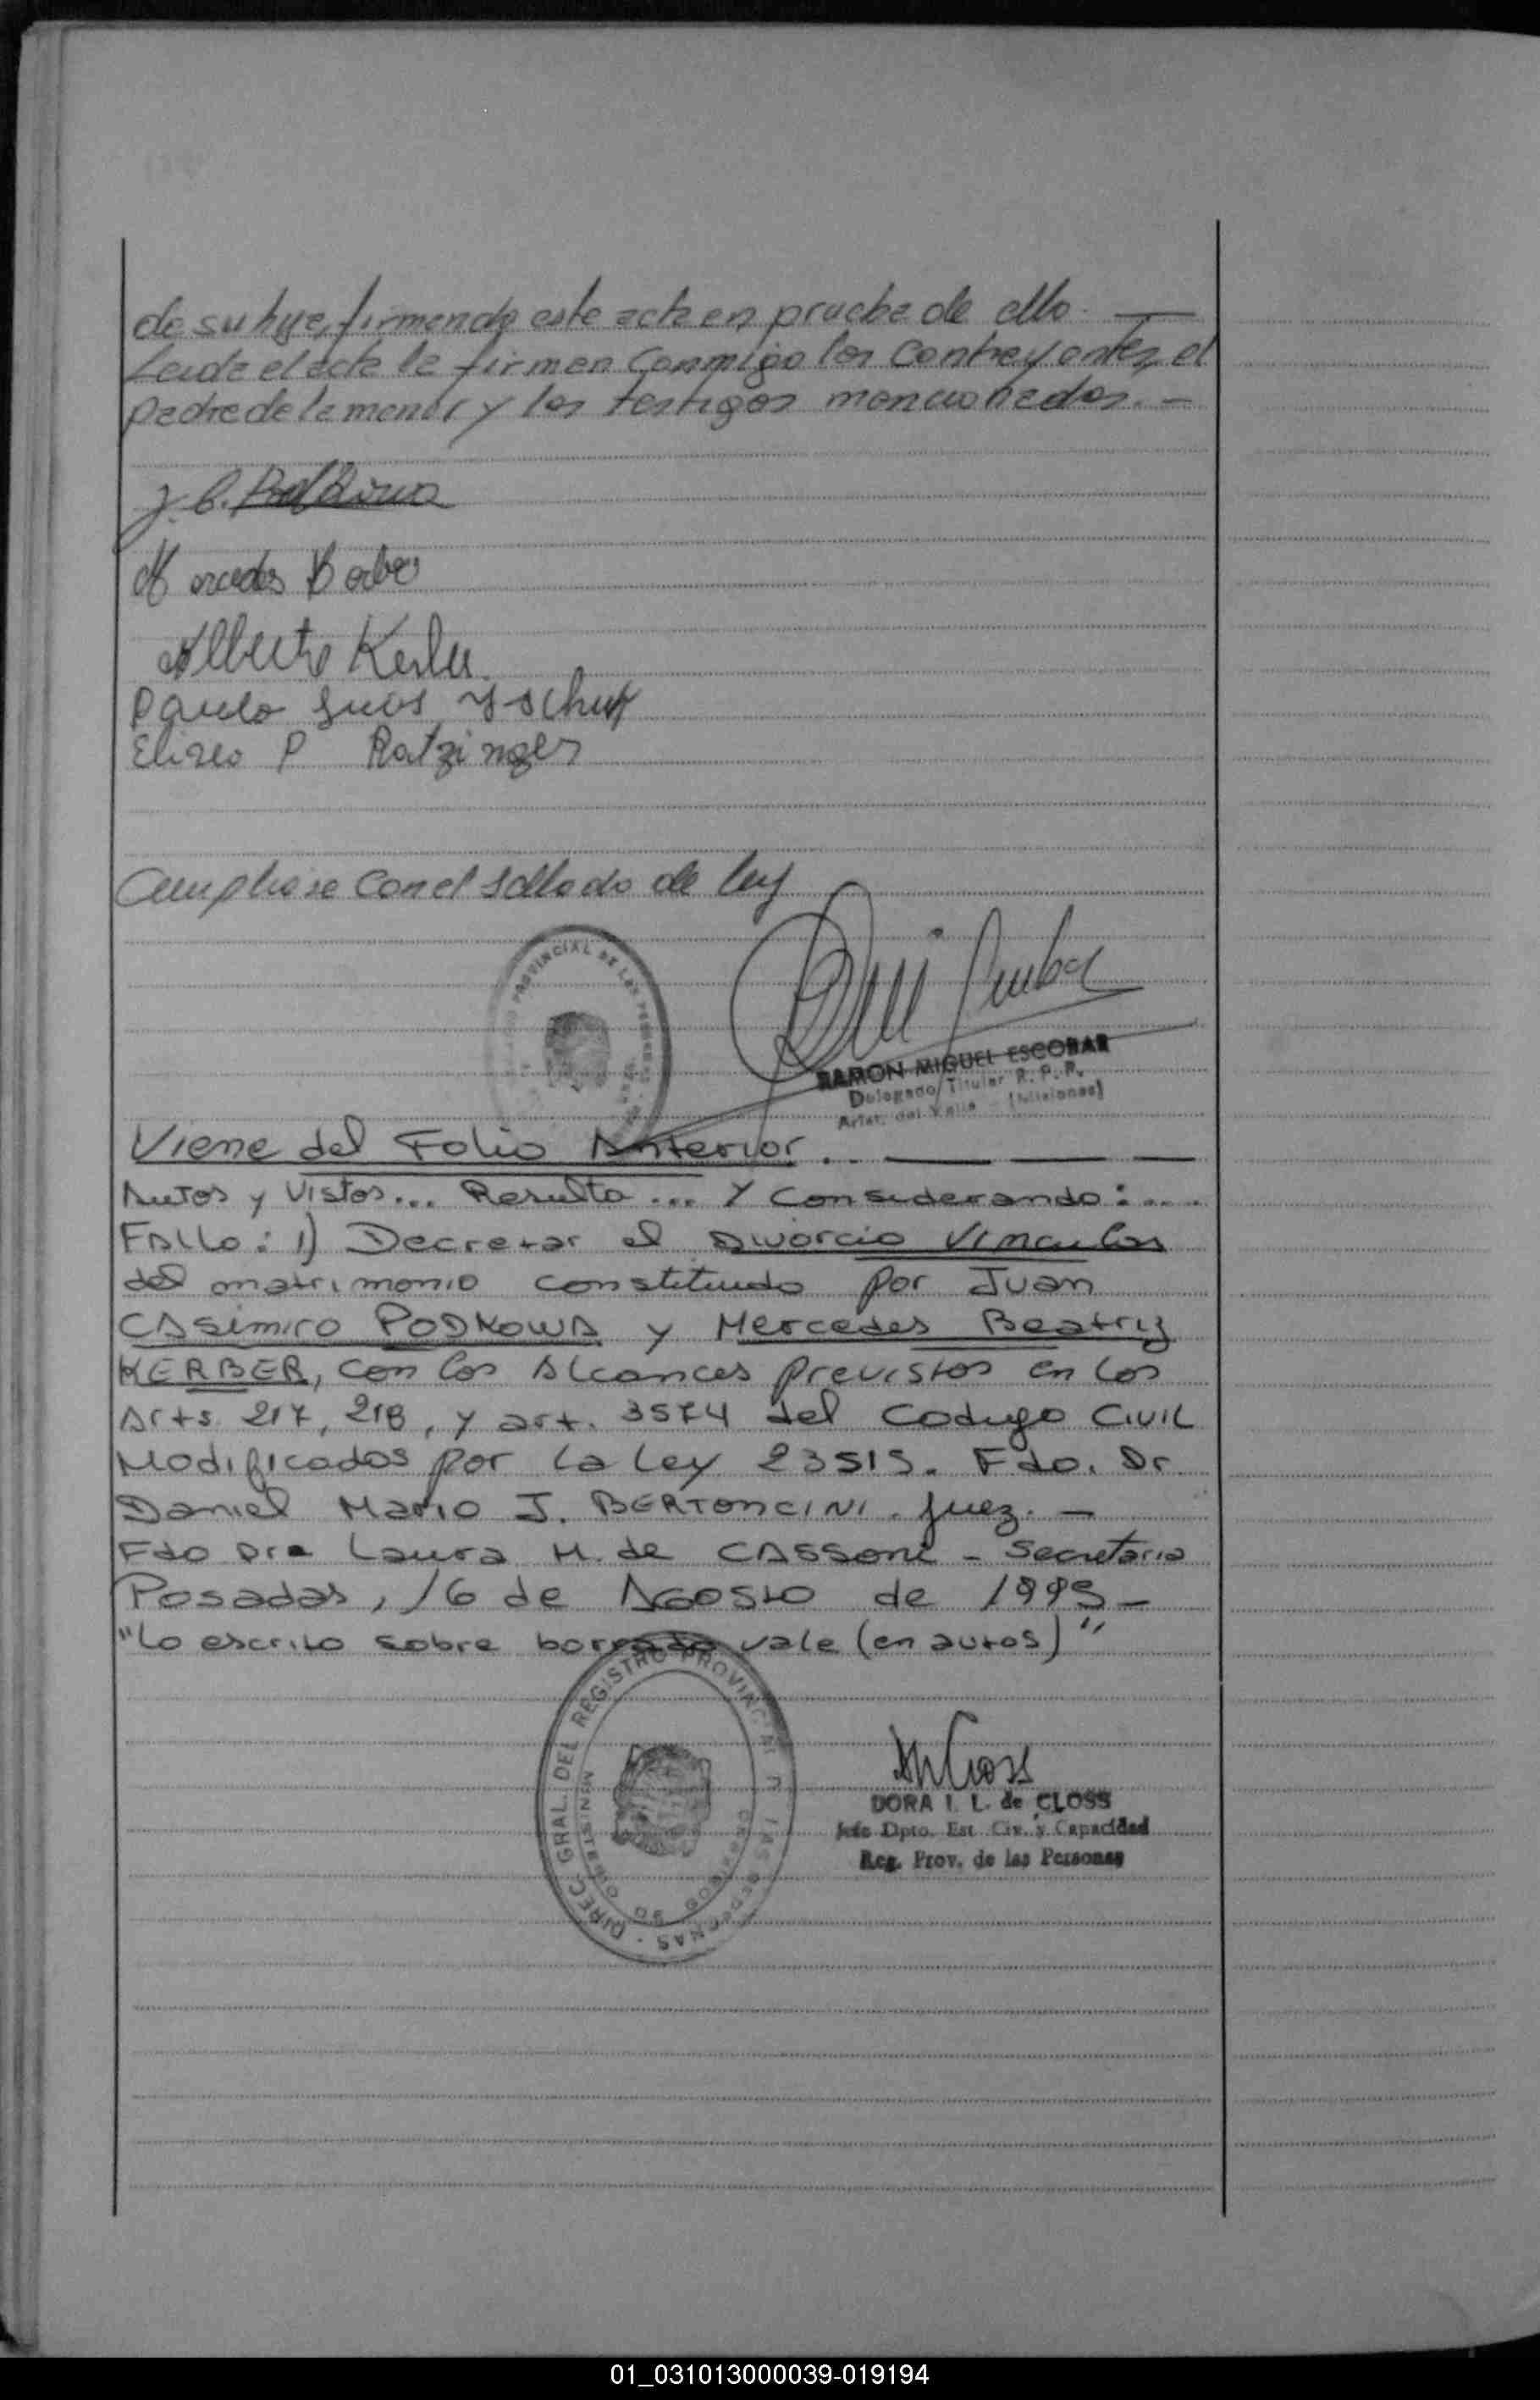 de su hija, firmando este acta en prueba de ello. —
Leída el acta la firman conmigo los contrayentes, el
padre de la menor y los testigos mencionados. —
J. C.
Mercedes Kerber
Alberto Kerber
Paulo Luis
Eliseo P Ratzinger
Cumplase con el sellado de ley
PROVINCIAL DE LAS PERSONAS
RAMON MIGUEL ESCOBAR
Delegado Titular R. P. P.
Arist. del Valle - (Misiones)
Viene del Folio Anterior. — — —
Autos y Vistos... Resulta... Y Considerando:....
Fallo: 1) Decretar el Divorcio Vincular
del matrimonio constituido por Juan
Casimiro PODKOWA y Mercedes Beatriz
KERBER, con los alcances previstos en los
Arts. 217, 218, y art. 3574 del Codigo Civil
Modificados por la Ley 23515. Fdo. Dr
Daniel Mario J. BERTONCINI. Juez. —
Fdo Dra Laura M. de CASSONI - Secretaria
Posadas, 16 de Agosto de 1995 —
"Lo escrito sobre borrado vale (en autos)"
DIREC. GRAL. DEL REGISTRO PROVINCIAL DE LAS PERSONAS
MINISTERIO DE GOBIERNO
DORA I. L. de CLOSS
Jefe Dpto. Est. Civ. y Capacidad
Reg. Prov. de las Personas
01_031013000039-019194